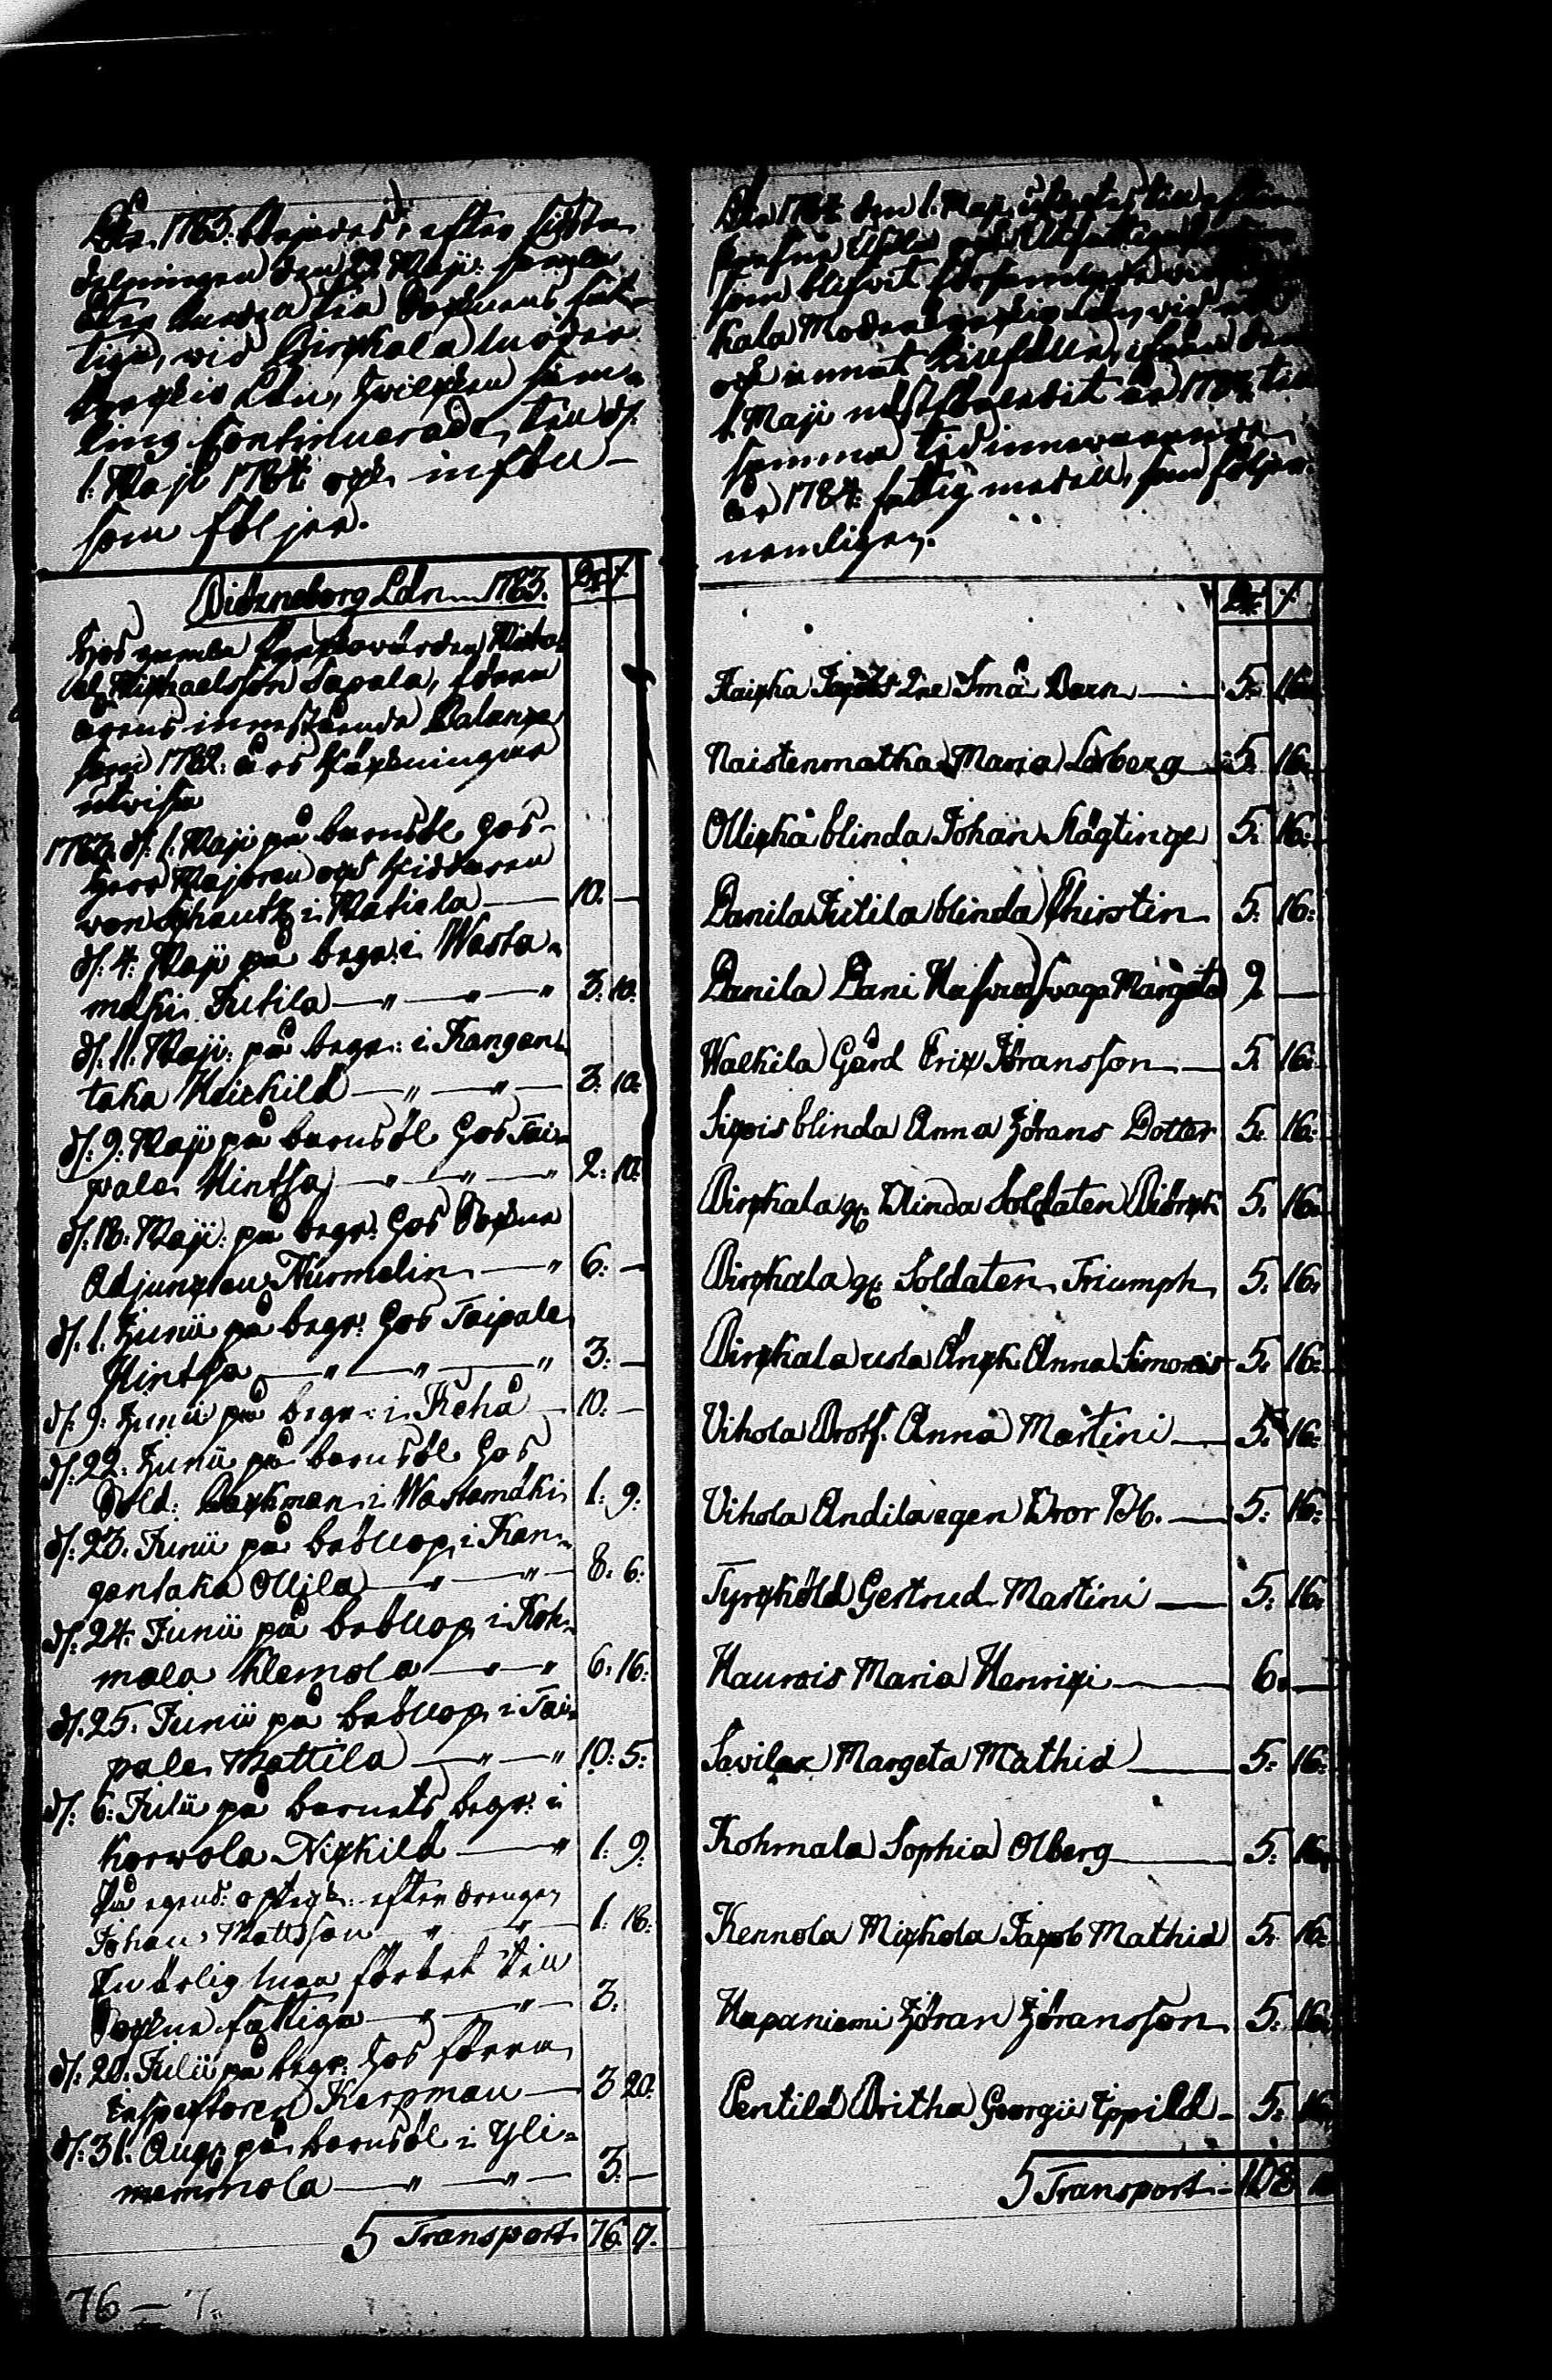 År 1783. börjades, efter sidsta
delningen den 29 Maji samla
åter medea till Soknens fat-
tiga, wid Birkala moder
kyrkio Ldn, hwilken sam-
ling continuerade, till d:
1. Maji 1784. och inföll
som följer.
Biörneborg Ldn 1783.
Hos gamla kyrkovärden Micha-
el Michaelsson Sapala, förra
årens innestående Balance
som 1782. års Räkningar
utvisa
1783. d: 1. Maji på barnsöl hos
Herr Majoren och Riddaren
von Schantz i Matiala — 10. —
d: 4. Maji på begr: i Wasta-
mäki Jutila — " — " — " 3. 10.
d: 11. Maji: på begr: i Kangan-
taka Heickilä — " — " — 3. 10.
d: 9. Maji på barnsöl hos Tai-
pale Hintsa — " — " — " 2. 10.
d: 18. Maji: på begr: hos Sokne
Adjuncten Nurmelin — " 6. —
d: 1. Junii på begr: hos Taipale
Hintsa — " — " — " 3. —
d: 9. Junii på begr: i Kehå 10. —
d: 22. Junii på barnsöl hos
Sold: Backman i Wastamäki 1: 9:
d: 23. Junii på bröllop i Kan-
gantaka Ollila — " — " — 8. 6:
d: 24. Junii på bröllop i Koh-
mala Klemola — " — " 6. 16:
d: 25. Junii på bröllop i Tai-
pale Mattila — " — " 10: 5:
d: 6: Julii på barnets begr: i
Korwola Nickilä — " 1: 9:
På egend: opteckn: efter drengen
Johan Mattsson " — " — 1: 18:
En ärlig man förärt till
Sokne fattiga — " — " — 3.
d: 20. Julii på begr: hos förra
Inspectoren Karpman — 3 20.
d: 31. Aug: på barnsöl i Yli-
memmola — " — " — 3. —
5 Transport 76. 7.
76 — 7.
År 1784 den 1. Maji
som blifvit församlade
kala Moder
och annat tillfälle, ifrån den
1. Maji nästförledit år 1783 till
samma tid innevarande
år 1784. fattig medell, som följer
nemligen.
Kaicka Små Barn — 5: 16:
Naistenmatka Maria Löfberg 5. 16.
Ollickå blinda Johan Hägtinge 5. 16.
Danila Jutila blinda Chirstin 5. 16:
Danila Dani Margeta 9 —
Walkila Gård Eric Jöransson — 5. 16:
Sixois blinda Anna Jörans Dotter 5. 16:
Birckala gz blinda Soldaten Biörck 5. 16.
Birckala gz Soldaten Triumph 5. 16.
Birckala usla Änck: Anna Simonis 5. 16:
Vihola Brotf. Anna Martini — 5. 16:
Vihola Andila egen Bror — 5: 16:
Tyrckölä Gertrud Martini — 5: 16.
Haurois Maria Henrici — 6. —
Savilax Margeta Mathiæ — 5: 16.
Kohmala Sophia Olberg — 5: 16.
Kennola Mickola Jacob Mathiæ 5. 16.
Hapaniemi Jöran Jöransson 5. 16.
Pentilä Britha Georgii Eppilä — 5: 16
5 Transport: 108